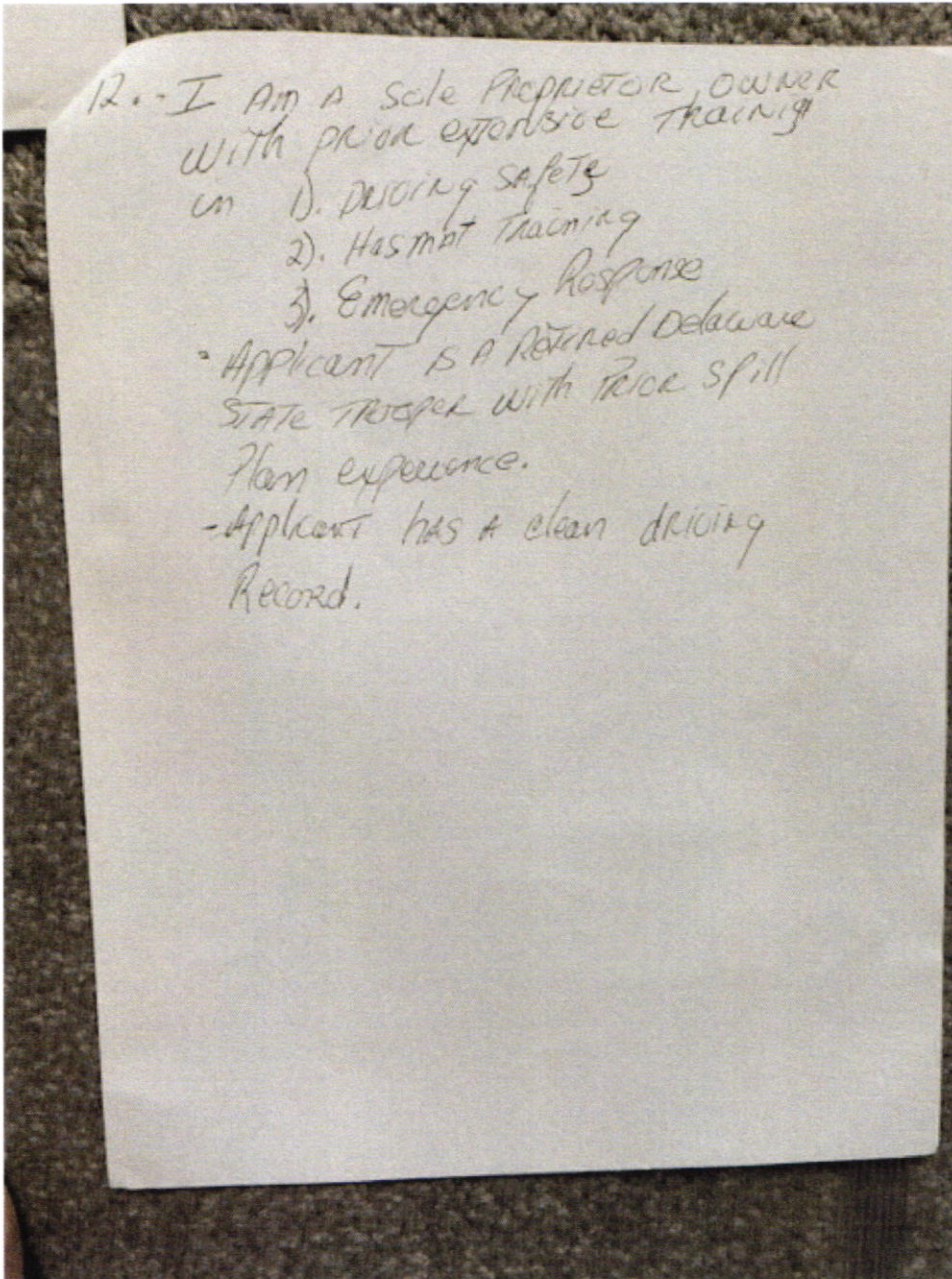 12. - I Am A Sole Proprietor, owner
with prior extensive Training
in 1). Driving Safety
2). Hasmat Training
3). Emergency Response
• Applicant is A Retired Delaware
State Trooper with Prior Spill
Plan experience.
- Applicant has A clean driving
Record.